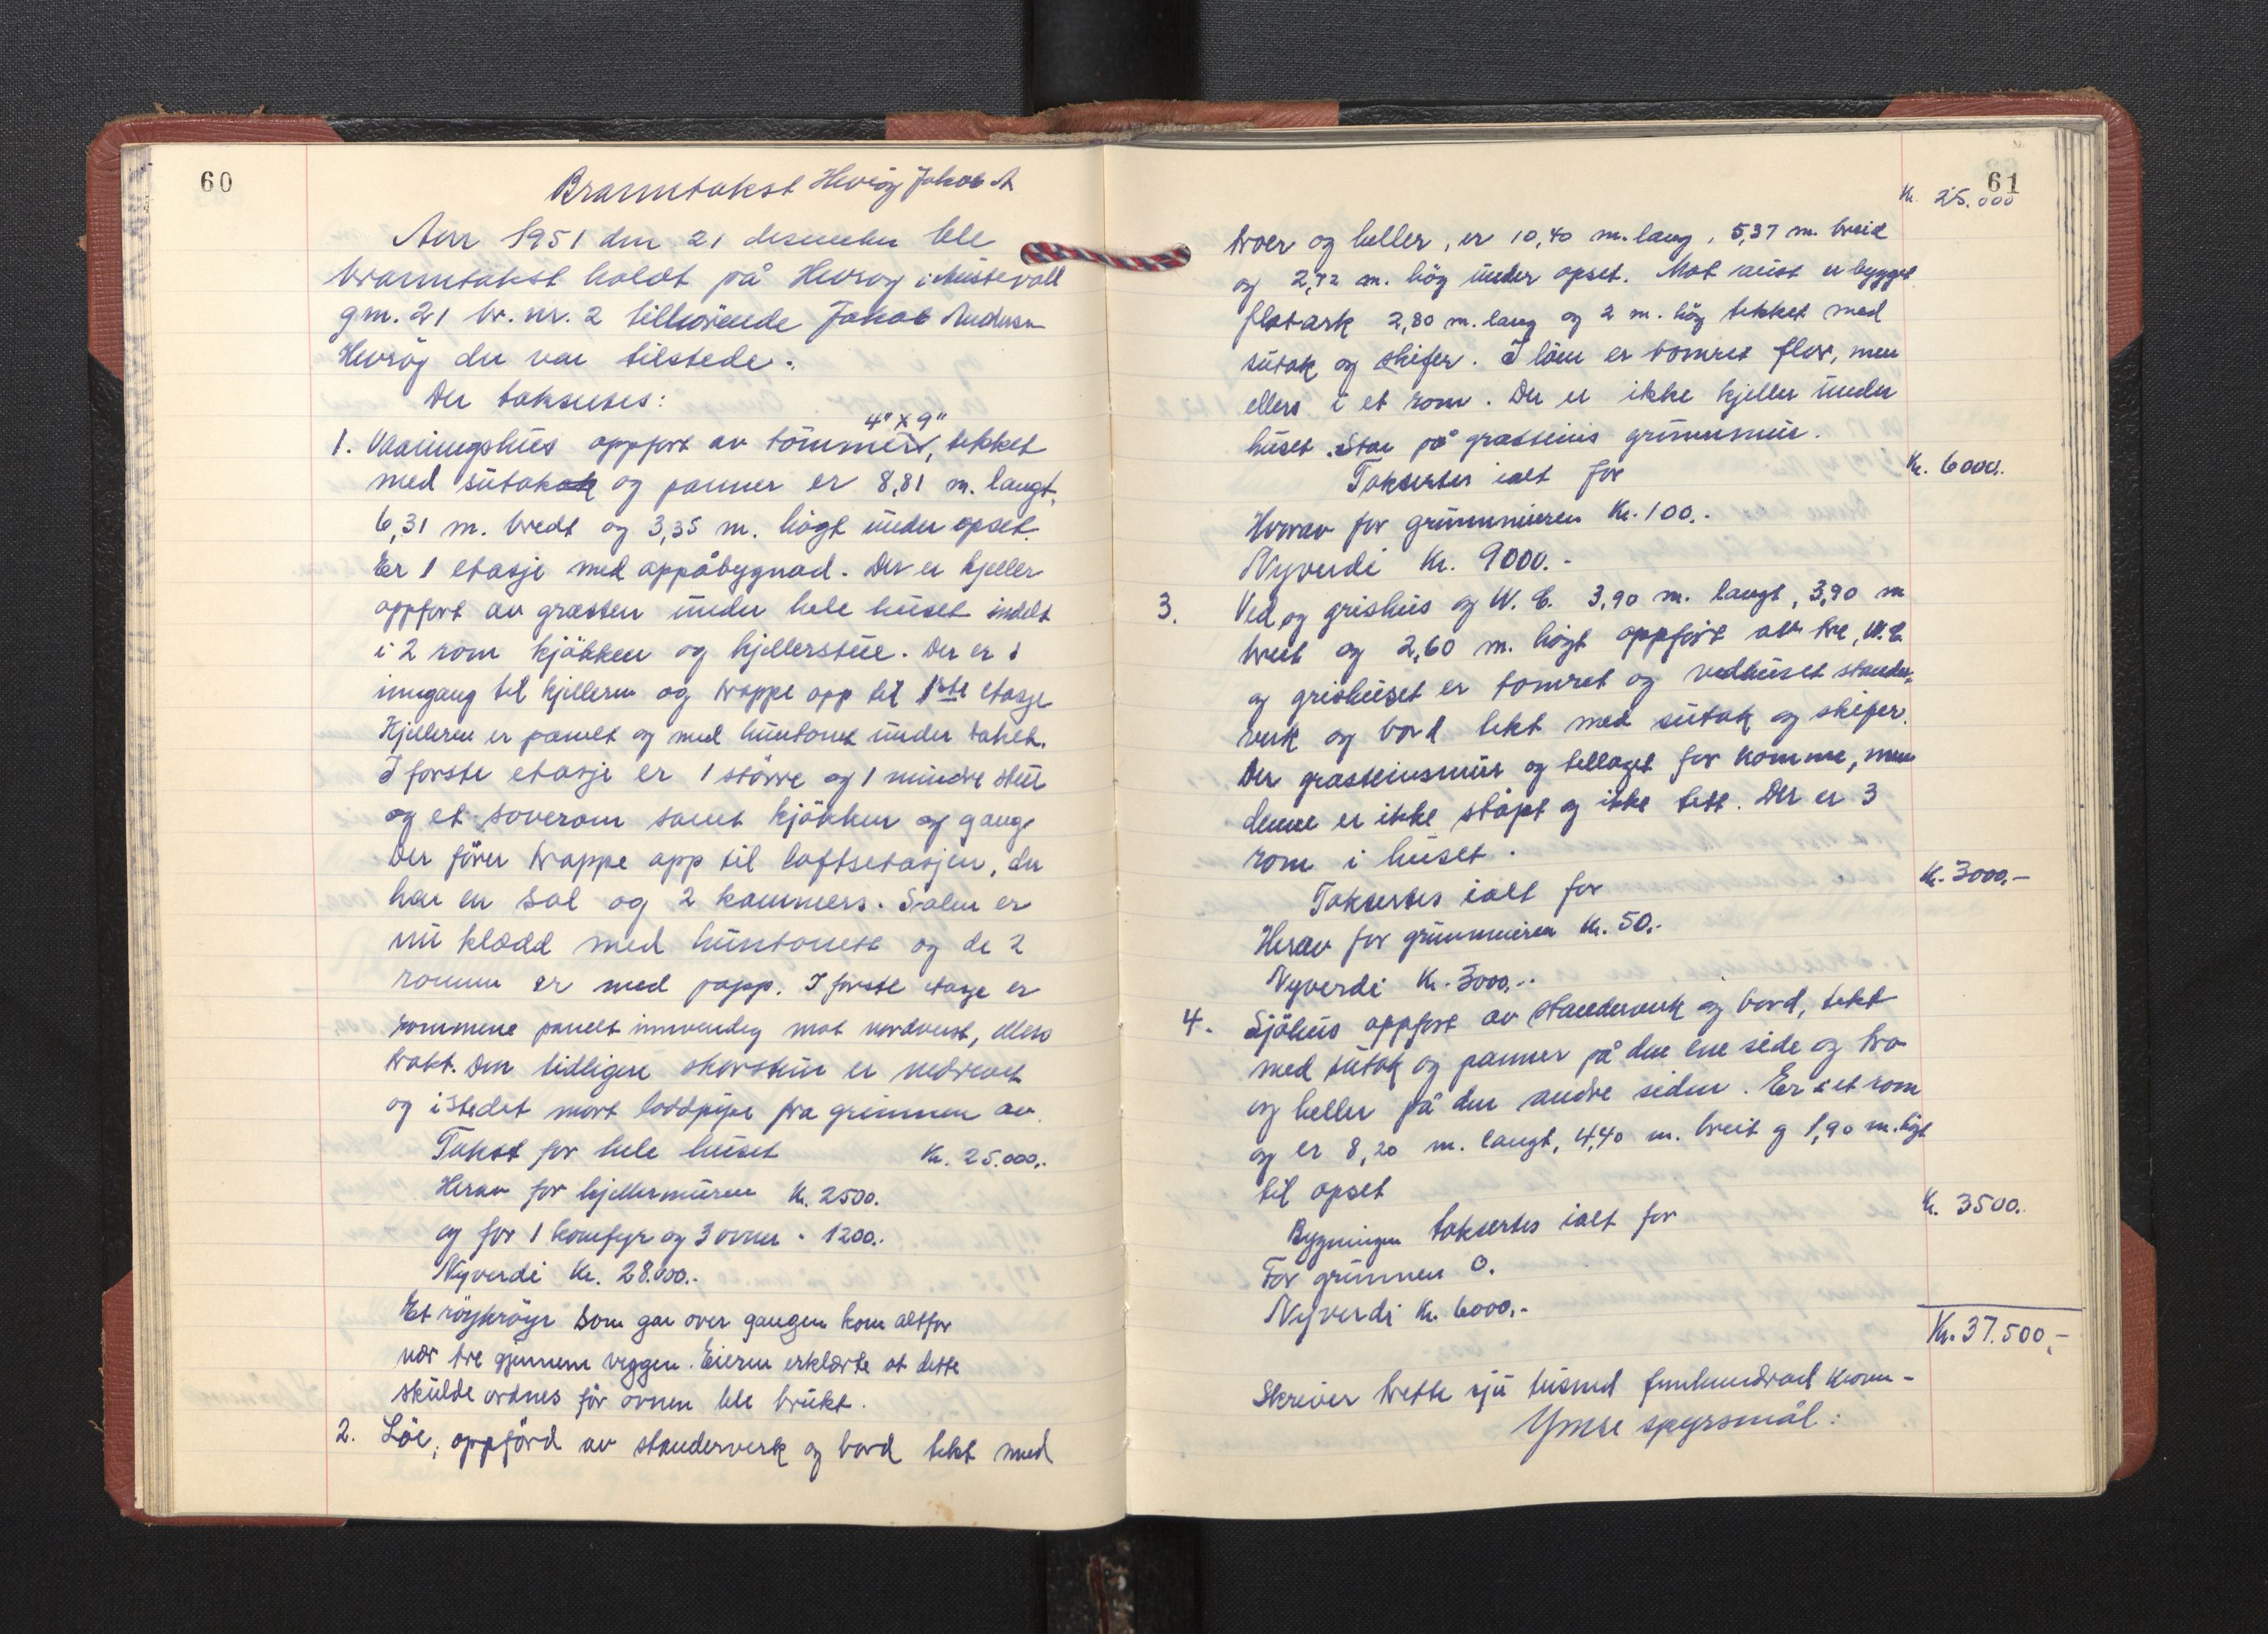 60
Branntakst Hevrøy Jakob A
Aar 1951 den 21 desember ble
branntakst holdt på Hevrøy i Austevoll
gnr. 21 br. nr. 2 tilhörende Jakob Andersen
Hevröy der var tilstede.
Der takseres:
4" X 9"
1. Vaaningshus oppfört av tömmer, tekket
med sutak og panner er 8,81 m. langt,
6,31 m. bredt og 3,35 m. högt under opset.
Er 1 etasje med oppåbygnad. Der er kjeller
oppfort av graasten under hele huset indelt
i 2 rom kjökken og kjellerstue. Der er i
inngang til kjelleren og trappe opp til 1ste etasje
Kjelleren er panelt og med huntonet under taket.
I forste etasje er 1 större og 1 mindre stue
og et soverom samt kjökken og gang.
Der förer trappe opp til loftsetasjen, der
har en sal og 2 kammers. Salen er
nu klædd med huntonett og de 2
rommen er med papp. I forste etasje er
rommene panelt innvendig mot nordvest, ellers
trakt. Den tidligere skorstein er nedrevet
og istedet mort loddpipe fra grunnen av.
Takst for hele huset Kr. 25.000.-
Herav for kjellermuren Kr. 2500.
og for 1 komfyr og 3 ovner " 1200.-
Nyverdi Kr. 28.000.-
Et röykröyr som gar over gangen kom altfor
nær tre gjennem veggen. Eieren erklærte at dette
skulde ordnes för ovnen ble brukt.
2. Löe, oppförd av standerverk og bord tekt med
61
Kr. 25.000
troer og heller, er 10,40 m. lang, 5,37 m. breid
og 2,72 m. hög under opset. Mot aust er bygget
flotark 2,80 m. lang og 2 m. hög tekket med
sutak og skifer. I löen er tomret flor, men
ellers i et rom. Der er ikke kjeller under
huset. Star på grasteins grunnmur.
Takseres ialt for Kr. 6000.
Hvorav for grunnmuren Kr. 100.-
Nyverdi Kr. 9000.-
3. Ved og grishus og W.C. 3,90 m. langt, 3,90 m
breit og 2,60 m. högt oppfört av tre, W.C.
og grishuset er tomret og vedhuset stander-
verk og bord tekt med sutak og skifer.
Der grasteinsmur og tellaget for komme, men
denne er ikke stöpt og ikke tett. Der er 3
rom i huset.
Takseres ialt for Kr. 3000.-
Herav for grunnmuren Kr. 50.-
Nyverdi Kr. 3000.-
4. Sjöhus oppfort av standerverk og bord, tekt
med sutak og panner på den ene side og tro
og heller på den andre siden. Er i et rom
og er 8,20 m. langt, 4,40 m. breit og 1,90 m. högt
til opset
Bygningen takseres ialt for Kr. 3500.
For grunnen 0.
Nyverdi Kr. 6000.-
Kr. 37.500,-
Skriver trette sju tusund femhundrad kroner -
Ymse spyrsmål: